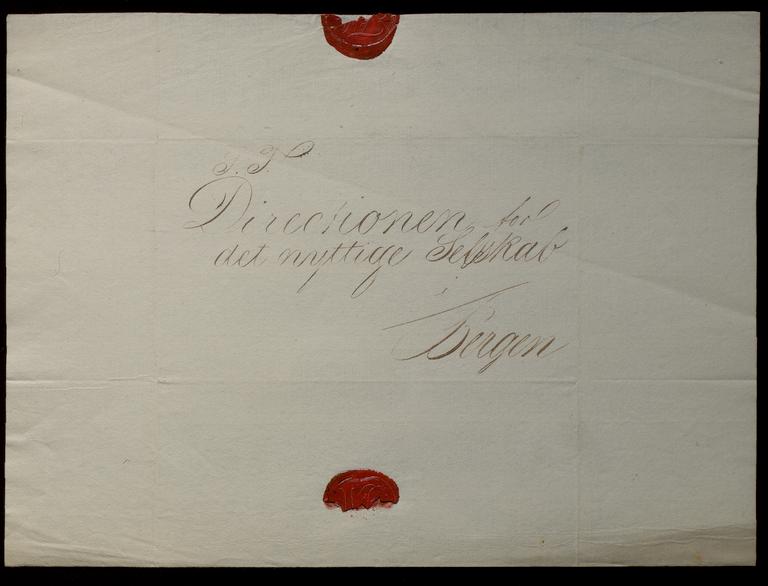 S. T.
Directionen for
det nyttige Selskab
i
Bergen